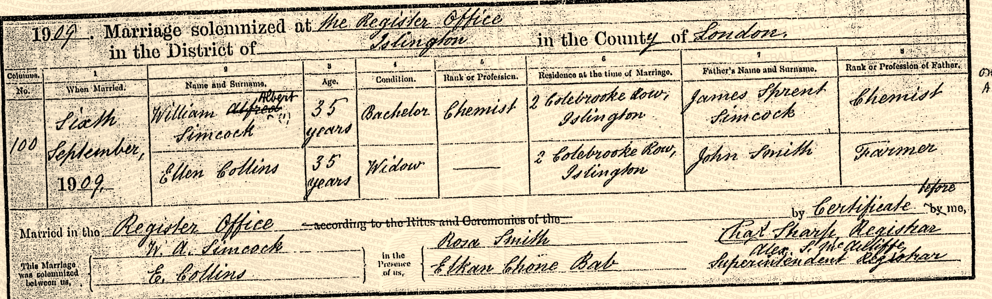 1909. Marriage solemnized at the Register Office
in the District of Islington in the County of London.
Columns. 1 2 3 4 5 6 7 8
No. When Married. Name and Surname. Age. Condition. Rank or Profession. Residence at the time of Marriage. Father's Name and Surname. Rank or Profession of Father.
100 Sixth September, 1909.
William Alfred Albert (1) Simcock 35 years Bachelor Chemist 2 Colebrooke Row, Islington James Sprent Simcock Chemist
Ellen Collins 35 years Widow 2 Colebrooke Row, Islington John Smith Farmer
Married in the Register Office according to the Rites and Ceremonies of the by Certificate before by me,
This Marriage was solemnized between us, W. A. Simcock
E. Collins
in the Presence of us, Rosa Smith
Elkan Chone Bab
Chas Sharp Registrar
Superintendent Registrar